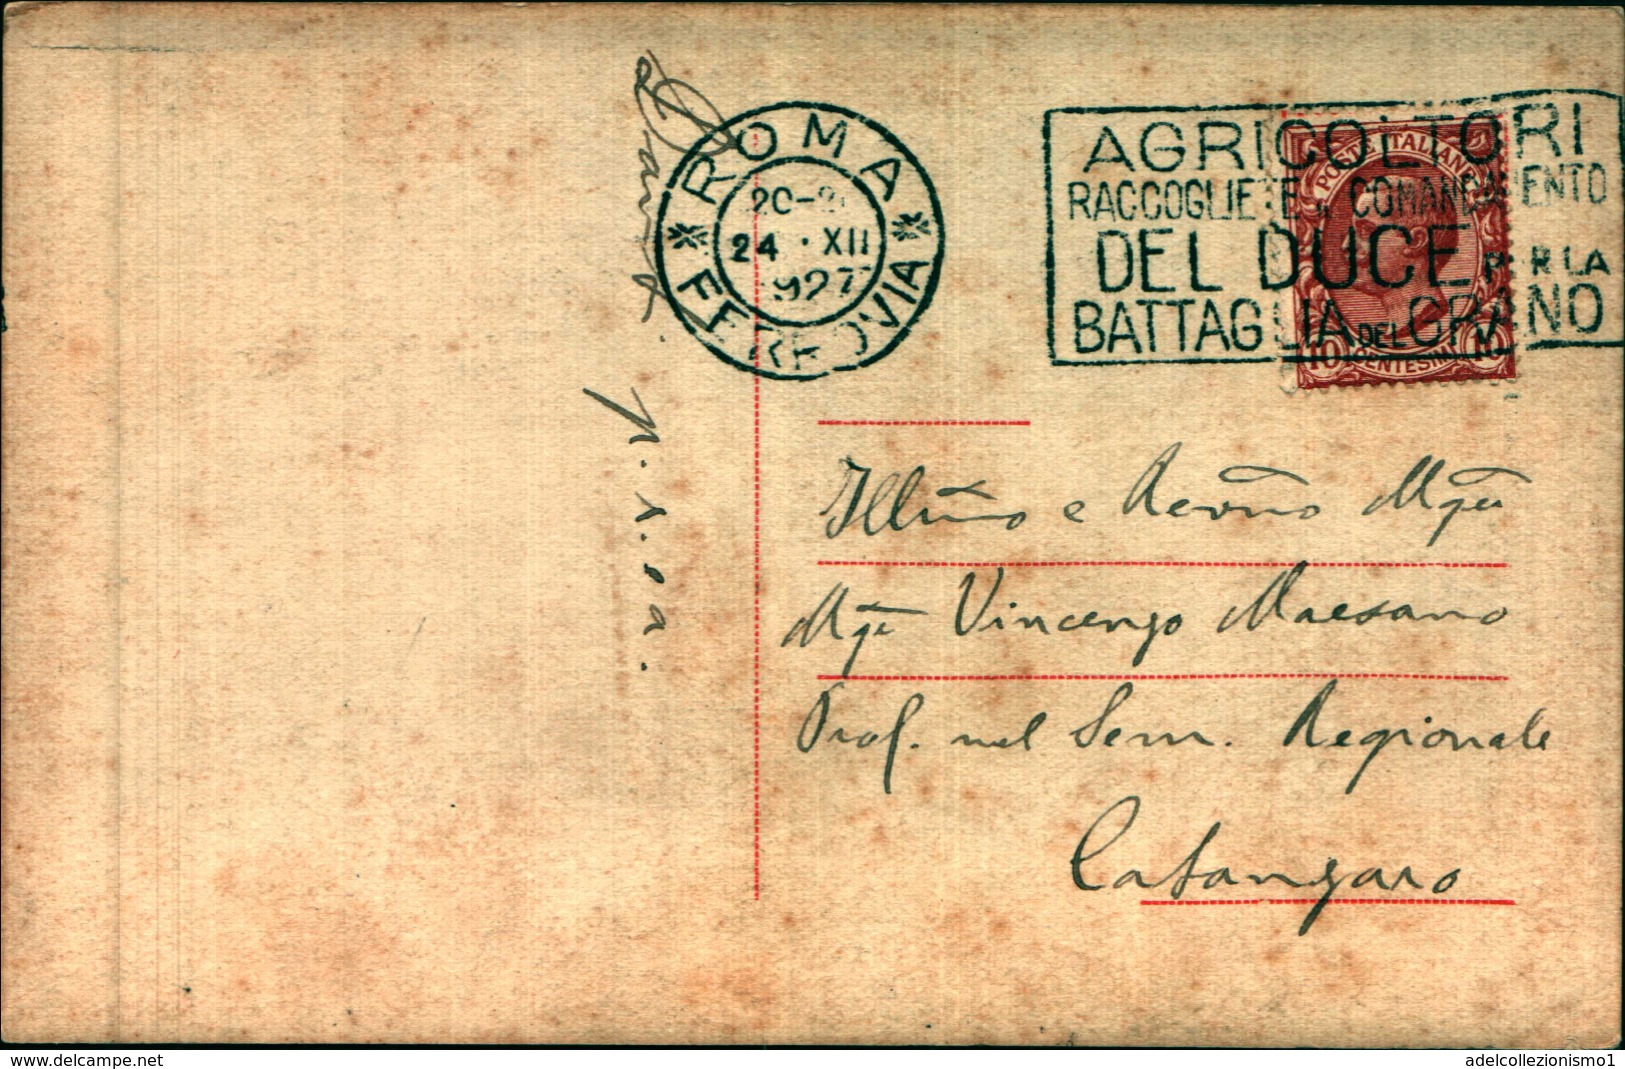 ROMA
20-2
24 · XII
1927
FERROVIA
AGRICOLTORI
RACCOGLIETE IL COMANDAMENTO
DEL DUCE PER LA
BATTAGLIA DEL GRANO
POSTE ITALIANE
10 CENTESIMI 10
Illm̃o e Revm̃o
Vincenzo Maesano
Prof. nel Sem. Regionale
Catanzaro
www.delcampe.net
adelcollezionismo1